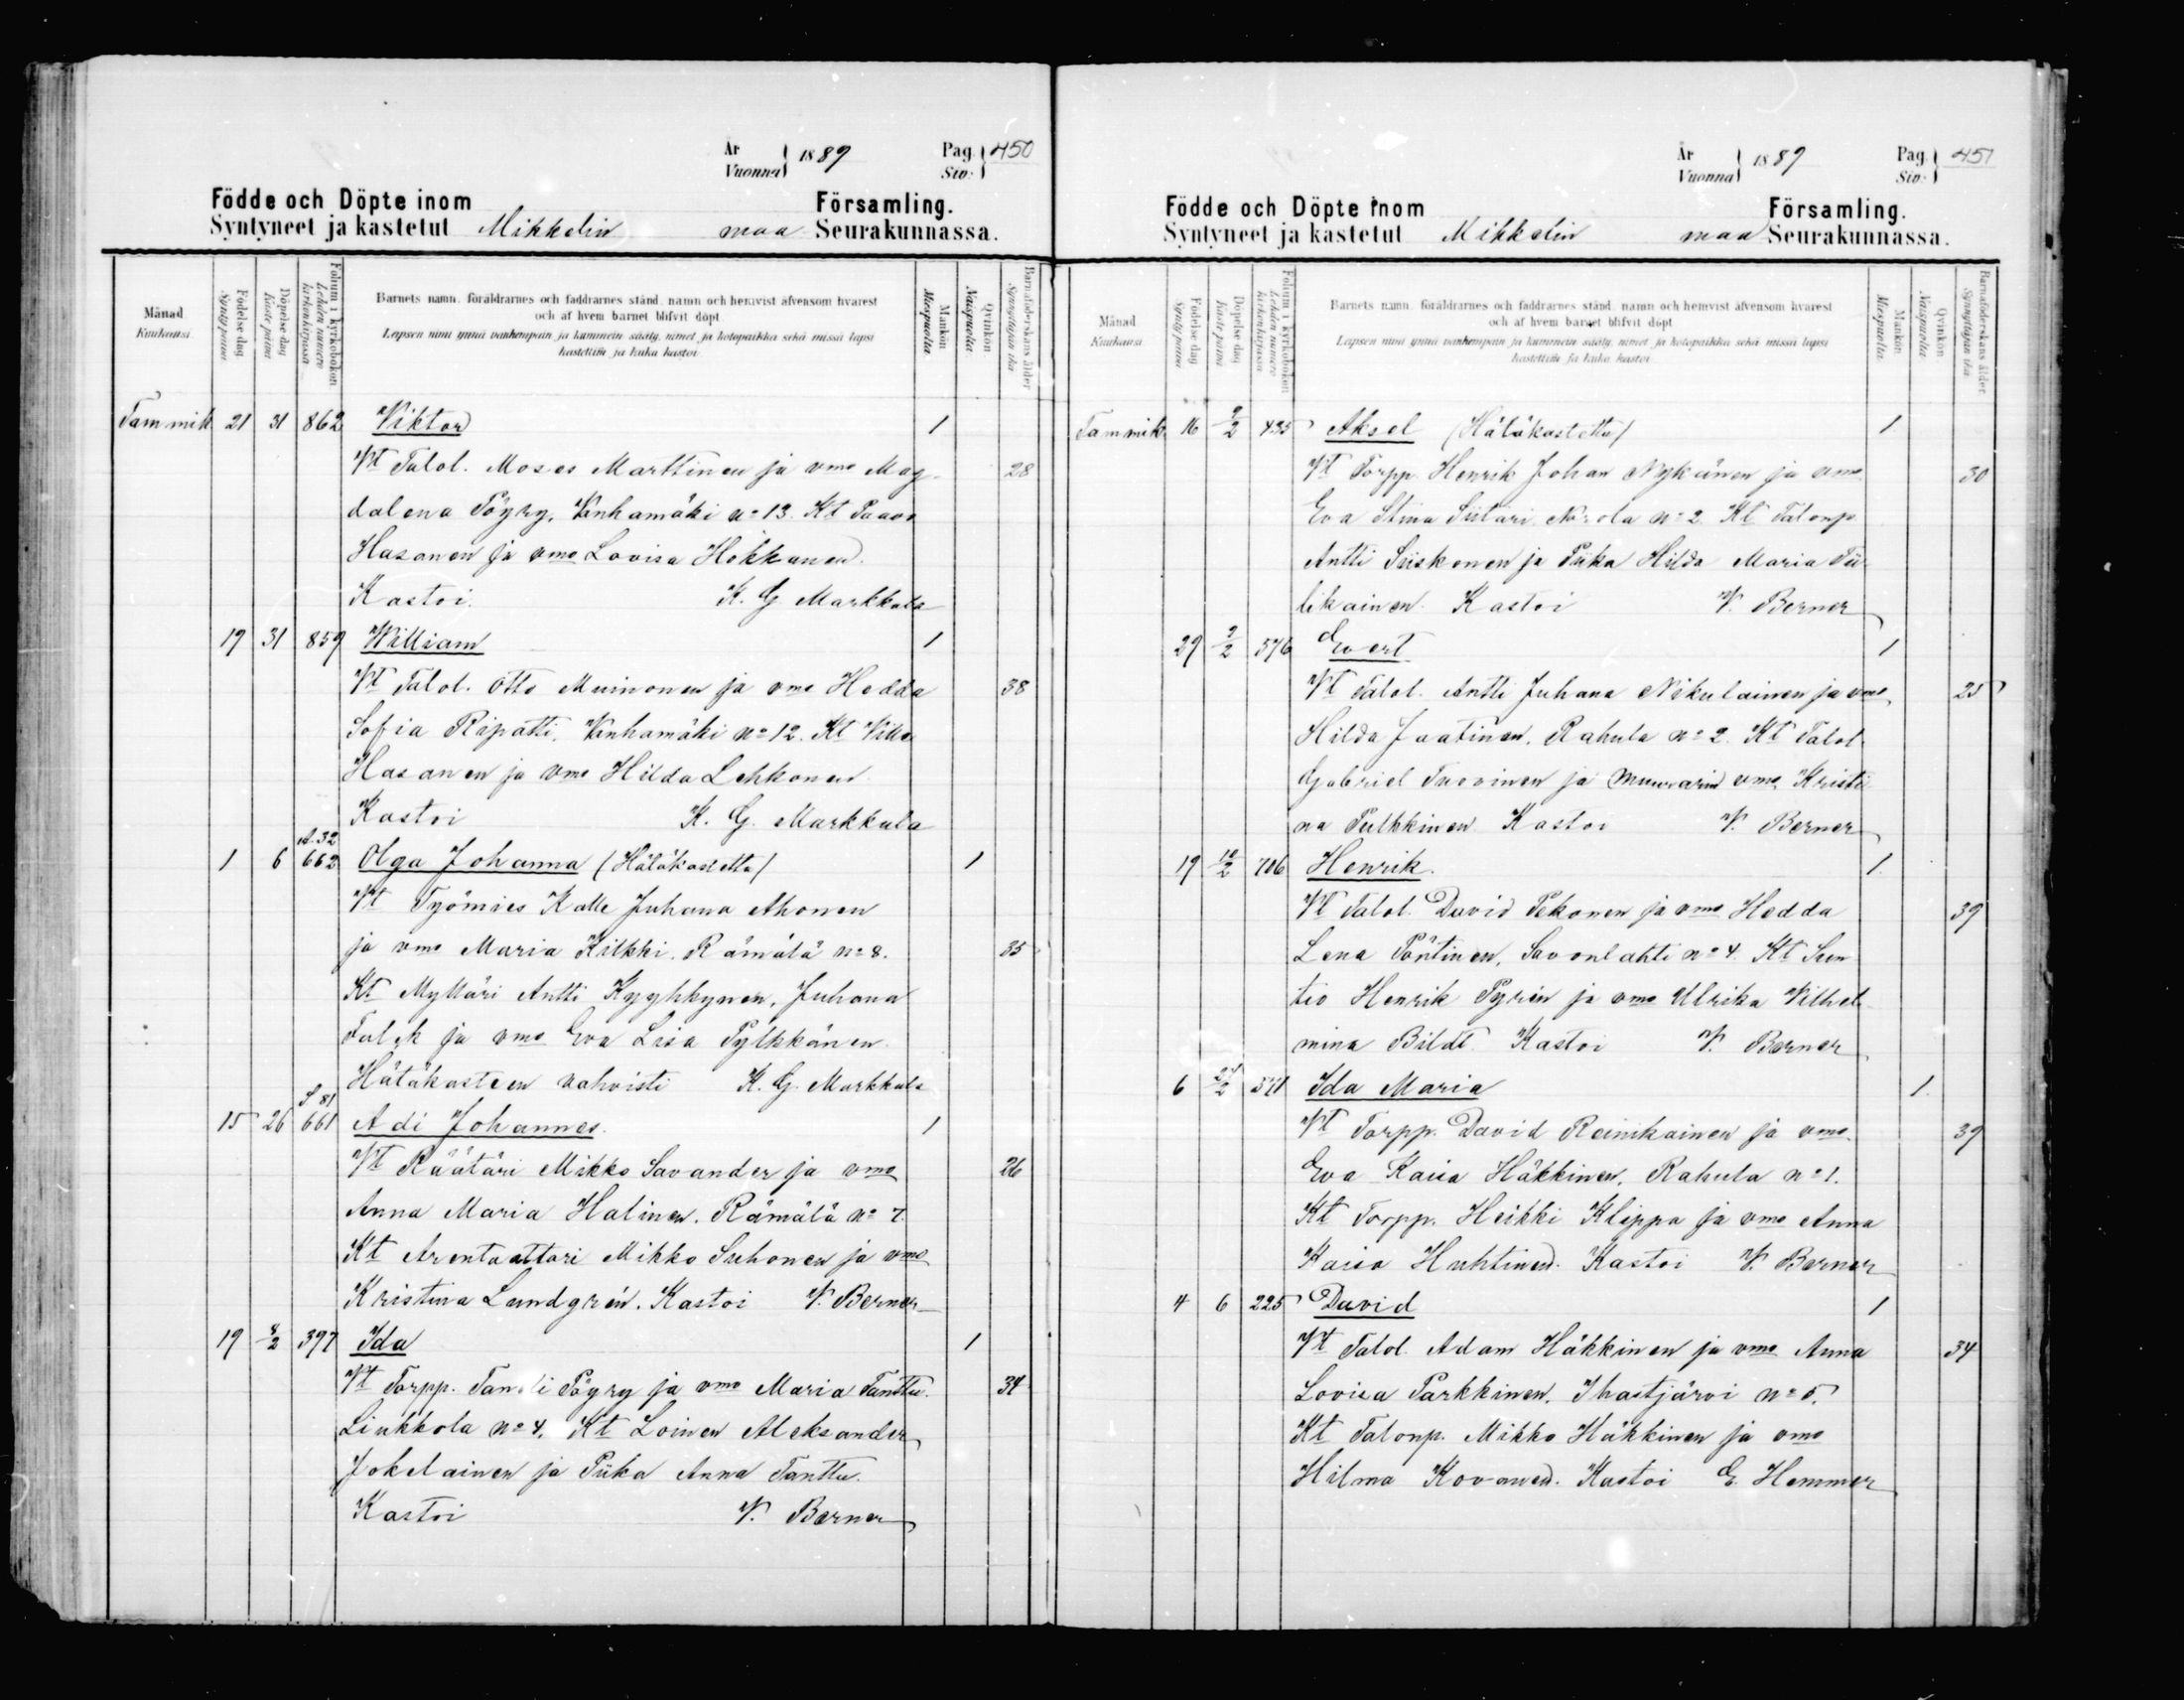 År
Vuonna 1889 Pag. Siv. 450
Födde och Döpte inom Församling.
Syntyneet ja kastetut Mikkelin maa Seurakunnassa.
Månad Kuukausi
Födelse dag Synty päivä
Döpelse dag Kaste päivä
Folium i kyrkoboken Lehden numero kirkonkirjassa
Barnets namn, föräldrarnes och faddrarnes stånd, namn och hemvist äfvensom hvarest
och af hvem barnet blifvit döpt.
Lapsen nimi ynnä vanhempain ja kummein sääty, nimet ja kotopaikka sekä missä lapsi
kastettiin ja kuka kastoi.
Mankön Miespuolia
Qvinkön Naispuolia
Barnaföderskans ålder Synnyttäjän ikä
Tammik. 21 31 862 Viktor 1
Vt Talol. Moses Marttinen ja vmo Mag- 28
dalena Pöyry, Vanhamäki No 13. Kt Paavo
Hasanen ja vmo Lovisa Hokkanen.
Kastoi. K. G. Markkula
19 31 859 William 1
Vt Talol. Otto Muinonen ja vmo Hedda 38
Sofia Ripatti, Vanhamäki No 12. Kt Ville
Hasanen ja vmo Hilda Lehkonen
Kastoi K. G. Markkula
A. 32
1 6 662 Olga Johanna (Hätäkastettu) 1
Vt Työmies Kalle Juhana Ahonen
ja vmo Maria Kilkki. Rämälä No 8. 35
Kt Mylläri Antti Kyyhkynen, Juhana
Falck ja vmo Eva Lisa Pylkkänen
Hätäkasteen vahvisti K. G. Markkula
S 81
15 26 661 Adi Johannes. 1
Vt Räätäri Mikko Savander ja vmo 26
Anna Maria Halinen. Rämälä No 7.
Kt Arentaattori Mikko Suhonen ja vmo
Kristina Lundgrén. Kastoi V. Berner
19 4/2 397 Ida 1
Vt Torpp. Taneli Pöyry ja vmo Maria Tanttu. 34
Liukkola No 4. Kt Loinen Aleksander
Jokelainen ja Piika Anna Tanttu.
Kastoi V. Berner
År
Vuonna 1889 Pag. Siv. 451
Födde och Döpte inom Församling.
Syntyneet ja kastetut Mikkelin maa Seurakunnassa.
Månad Kuukausi
Födelse dag Synty päivä
Döpelse dag Kaste päivä
Folium i kyrkoboken Lehden numero kirkonkirjassa
Barnets namn, föräldrarnes och faddrarnes stånd, namn och hemvist äfvensom hvarest
och af hvem barnet blifvit döpt.
Lapsen nimi ynnä vanhempain ja kummein sääty, nimet ja kotopaikka sekä missä lapsi
kastettiin ja kuka kastoi.
Mankön Miespuolia
Qvinkön Naispuolia
Barnaföderskans ålder Synnyttäjän ikä
Tammik. 16 9/2 435 Aksel (Hätäkastettu) 1
Vt Torpp. Henrik Johan Nykänen ja vmo 30
Eva Stina Siitari No 2 Kt Talonp.
Antti Siiskonen ja Piika Hilda Maria Tii-
likainen. Kastoi V. Berner
29 9/2 576 Evert 1
Vt Talol. Antti Juhana Nikulainen ja vmo 25
Hilda Jaatinen. Rahula No 2. Kt Talol.
Gabriel Tuovinen ja Muurarin vmo Kristii-
na Pulkkinen Kastoi V. Berner
19 10/2 706 Henrik. 1
Vt Talol. David Pekonen ja vmo Hedda 39
Lena Pöntinen, Savonlahti No 4. Kt Sun-
tio Henrik Pyrén ja vmo Ulrika Vilhel-
mina Bildt. Kastoi V. Berner
6 24/2 571 Ida Maria 1
Vt Torpp. David Reinikainen ja vmo. 39
Eva Kaisa Häkkinen. Rahula No 1.
Kt Torpp. Heikki Klippa ja vmo Anna
Kaisa Huhtinen. Kastoi V. Berner
4 6 225 David 1
Vt Talol. Adam Häkkinen ja vmo Anna 34
Lovisa Parkkinen. Ihastjärvi No 5.
Kt Talonp. Mikko Häkkinen ja vmo
Hilma Kovanen. Kastoi E. Hemmer